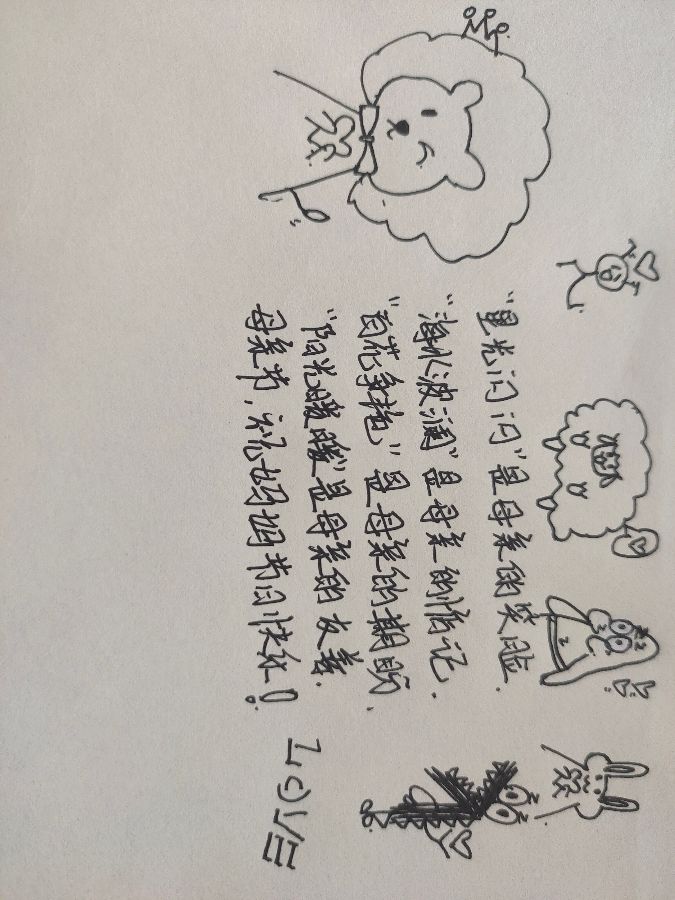 "星光闪闪"是母亲的笑脸.
"海水波澜"是母亲的惦记.
"百花争艳"是母亲的期盼.
"阳光暖暖"是母亲的友善.
母亲节,祝妈妈节日快乐!
LOVE